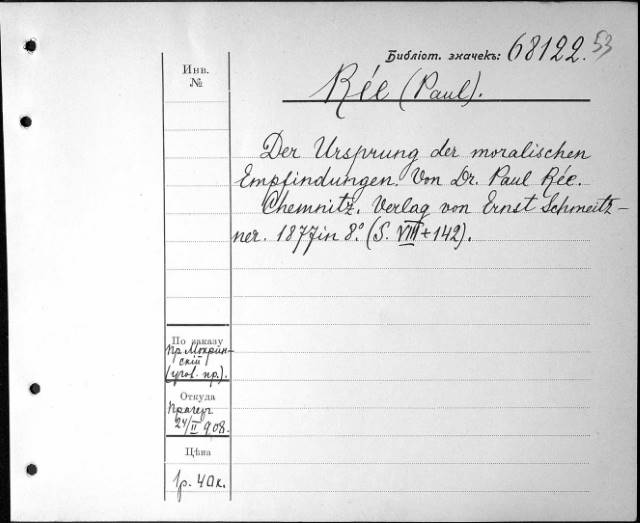 Библіот. значекъ: 68122. 53
Инв.
№
Rée (Paul).
Der Ursprung der moralischen
Empfindungen. Von Dr. Paul Rée.
Chemnitz. Verlag von Ernst Schmeitz-
ner. 1877 in 8.° (S. VIII + 142).
По заказу
Пр. Мокрин-
скій
(угов. пр.).
Откуда
Прагеръ
24/II 908.
Цѣна
1р. 40к.